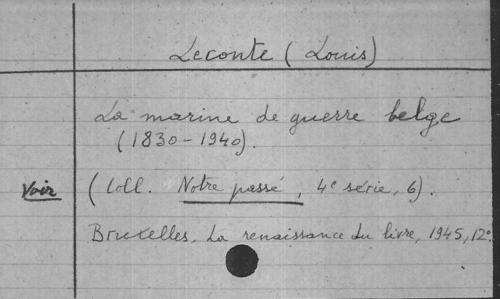 Leconte (Louis)
La marine de guerre belge
(1830-1940).
Voir (Coll. Notre passé, 4e série, 6).
Bruxelles, La renaissance du livre, 1945, 12°.